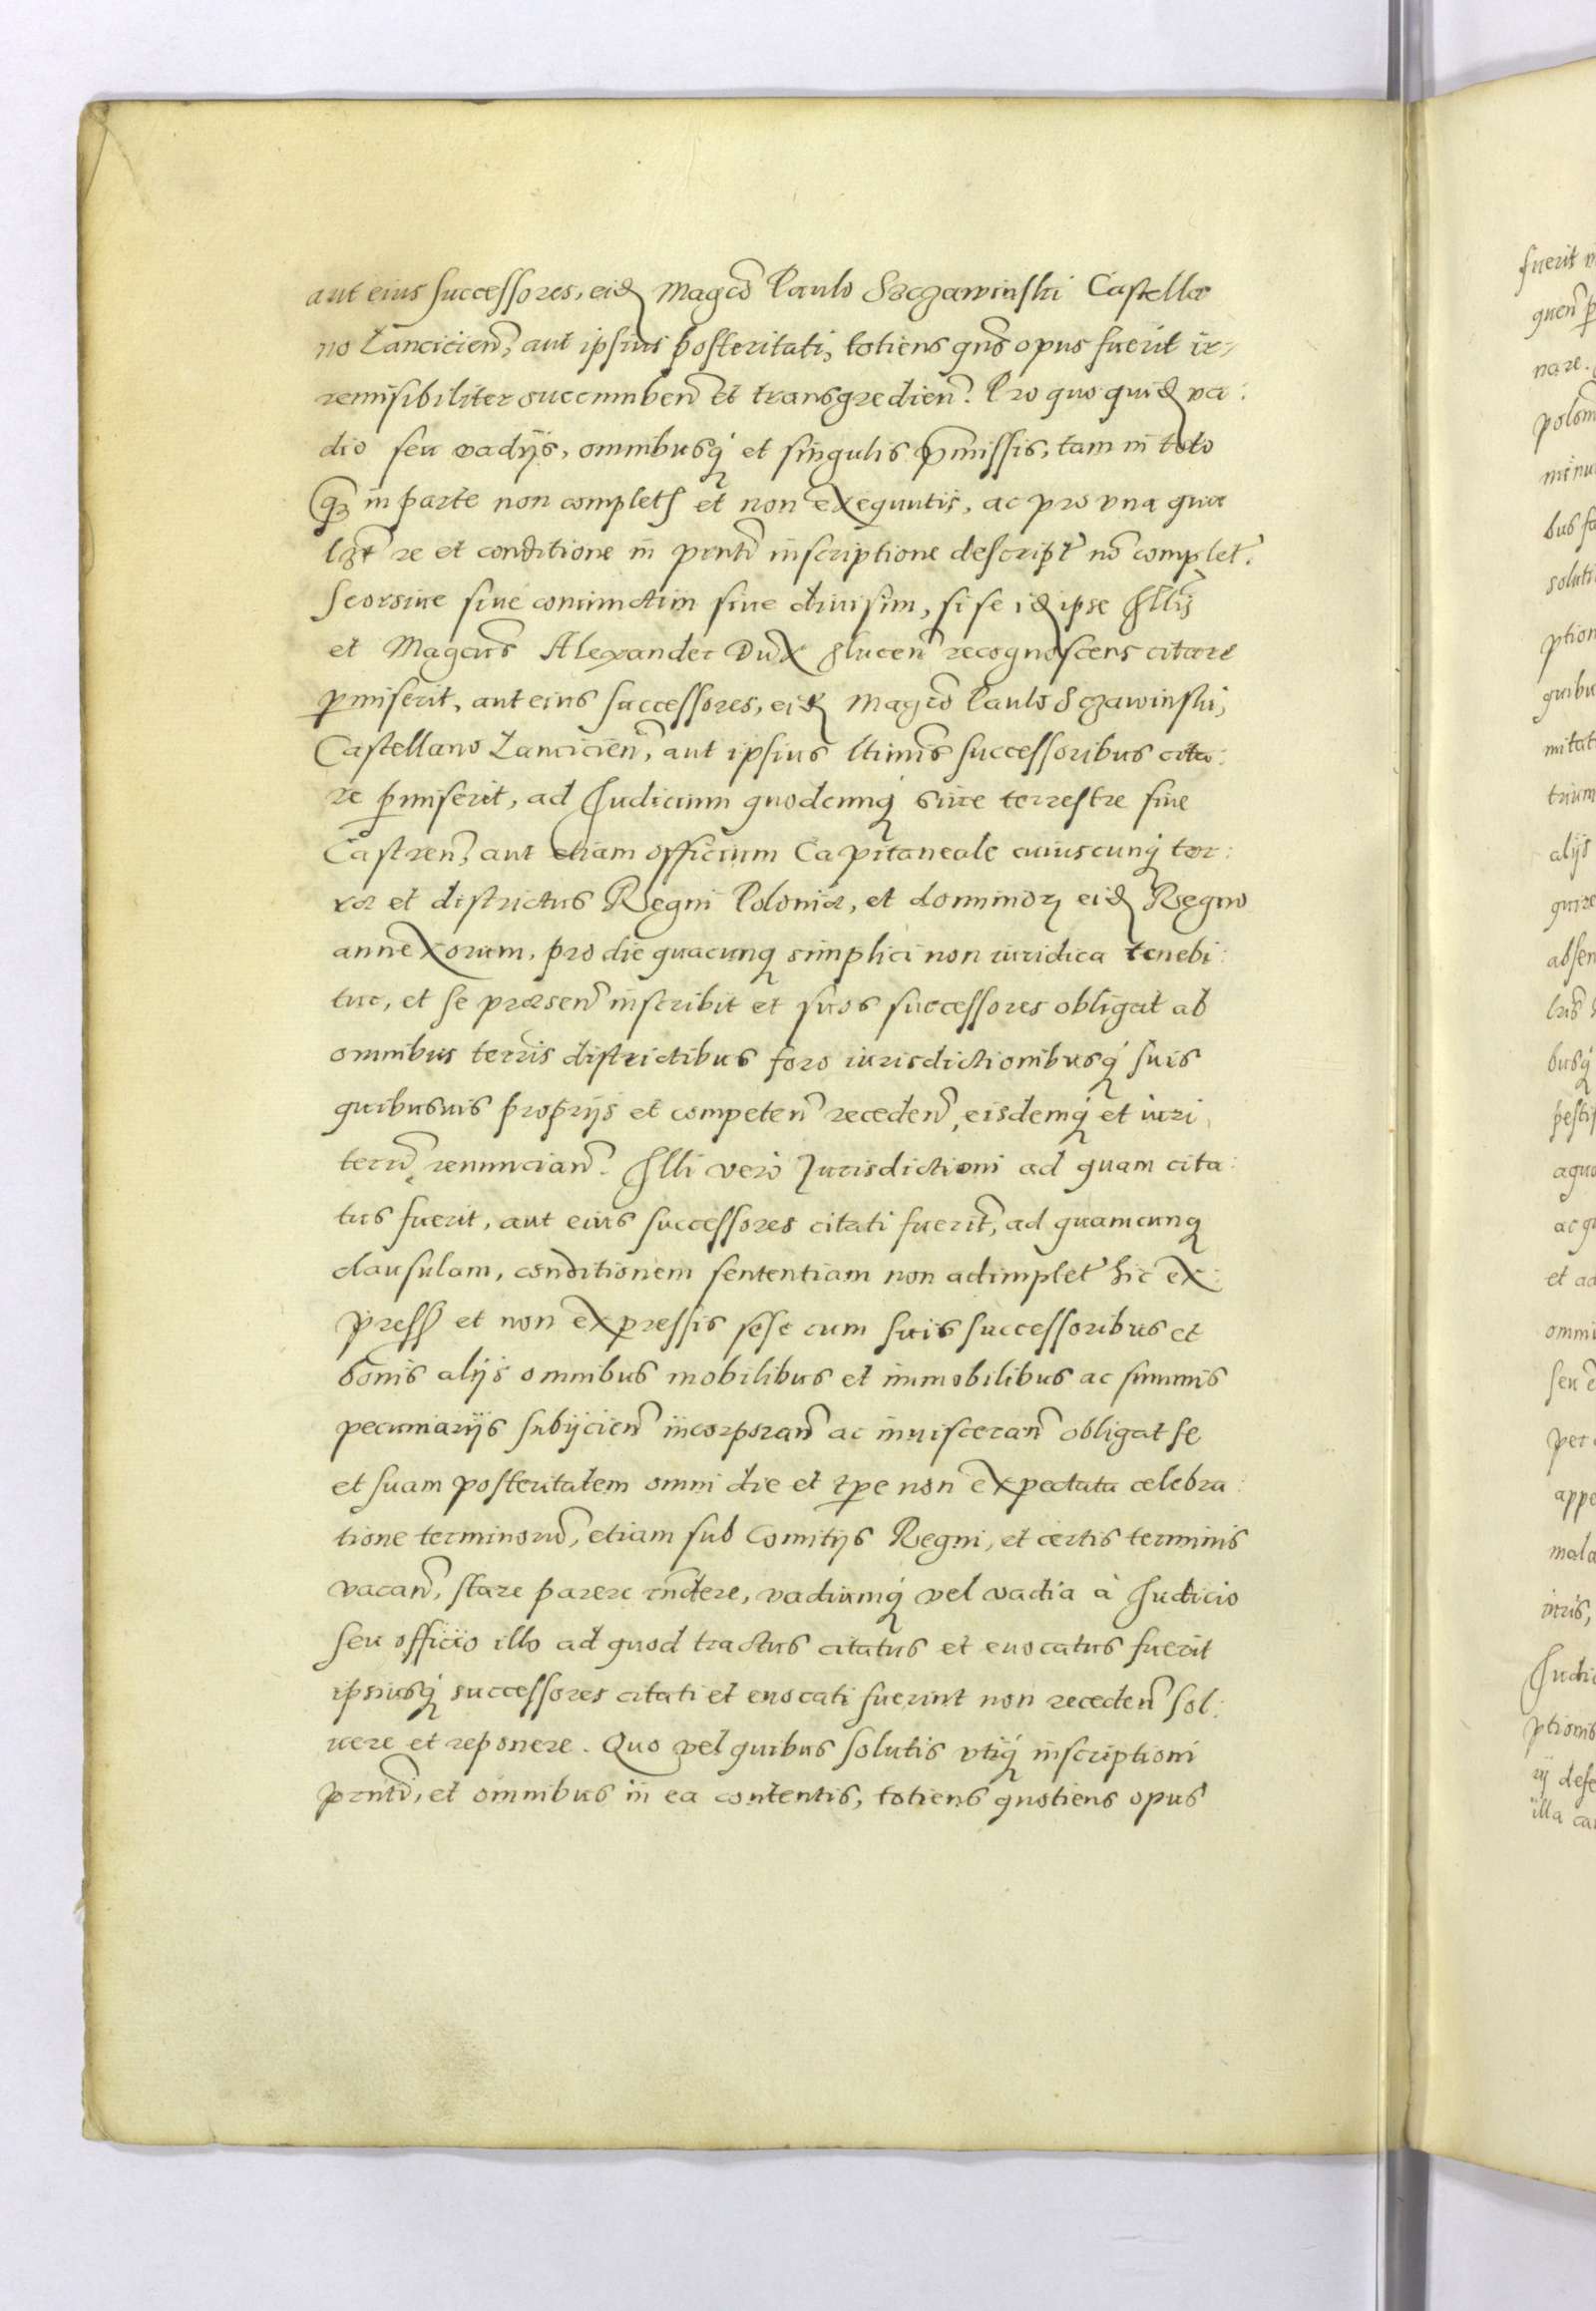 aut eius successores, eid Magco Paulo Sczawinski Castella
no Lancicien, aut ipsius posteritati, totiens qns opus fuerit ir-
remisibiliter succumben et transgredien. Pro quo quid va:
dio seu vadijs, omnibusq et singulis pmissis, tam in toto
q in parte non complet et non exequutis, ac pro vna qua
lzt re et conditione in pnti inscriptione descript no complet.
Seorsiue siue coniunctim siue diuisim, si se id ipse Illis
et Magcus Alexander Dux Slucen recognoscens citare
pmiserit, aut eius successores, eid Magco Paulo Sczawinski,
Castellano Lancicien, aut ipsius ltimis successoribus cita:
re pmiserit, ad Judicium quodcunq siue terrestre siue
Castren, aut etiam officium Capitaneale cuiuscunq ter:
ræ et districtus Regni Poloniæ, et dominior eid Regno
annexorum, pro die quacunq simplici non iuridica tenebi:
tur, et se præsen inscribit et suos successores obligat ab
omnibus terris districtibus foro iurisdictionibusq suis
quibusuis proprijs et competen receden, eisdemq et iuri
terru renuncian. Illi vero Jurisdictioni ad quam cita:
tus fuerit, aut eius successores citati fuerit, ad quamcunq
clausulam, conditionem sententiam non adimplet hic ex:
press et non expressis sese cum suis successoribus et
bonis alijs omnibus mobilibus et immobilibus ac summis
pecuniarijs subijcien incorporan ac inuisceran obligat se
et suam posteritatem omni die et tpe non expectata celebra:
tione terminoru, etiam sub Comitijs Regni, et certis terminis
vacan, stare parere rndere, vadiumq vel vadia à Judicio
seu officio illo ad quod tractus citatus et euocatus fuerit
ipsiusq successores citati et euocati fuerint non receden sol:
uere et reponere. Quo vel quibus solutis vtiq inscriptioni
pnti, et omnibus in ea contentis, totiens quotiens opus